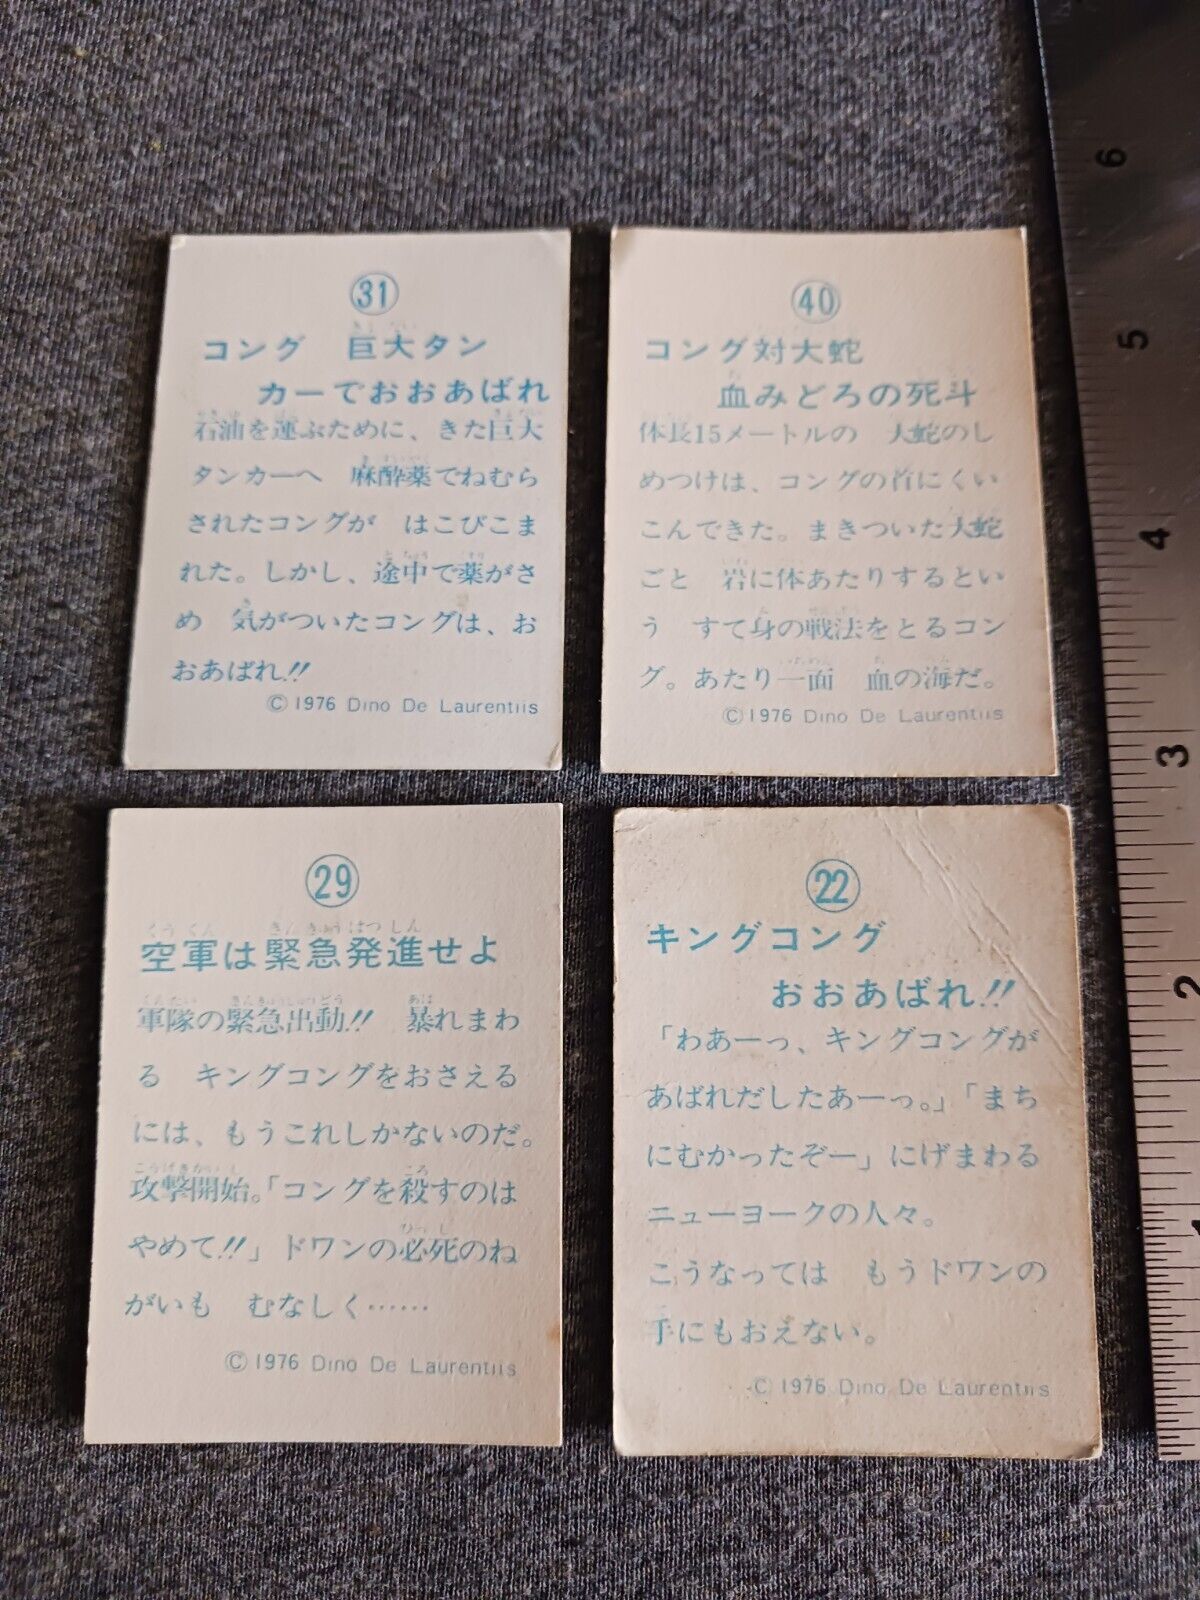 31
コング 巨大タン
カーでおおあばれ
石油を運ぶために、きた巨大
タンカーへ 麻酔薬でねむら
されたコングが はこびこま
れた。しかし、途中で薬がさ
め 気がついたコングは、お
おあばれ!!
© 1976 Dino De Laurentiis
40
コング対大蛇
血みどろの死斗
体長15メートルの 大蛇のし
めつけは、コングの首にくい
こんできた。まきついた大蛇
ごと 岩に体あたりするとい
う すて身の戦法をとるコン
グ。あたり一面 血の海だ。
© 1976 Dino De Laurentiis
29
くうぐん きんきゅうはつしん
空軍は緊急発進せよ
ぐんたい きんきゅうしゅつどう あば
軍隊の緊急出動!! 暴れまわ
る キングコングをおさえる
には、もうこれしかないのだ。
こうげきかいし ころ
攻撃開始。「コングを殺すのは
ひっし
やめて!!」ドワンの必死のね
がいも むなしく……
© 1976 Dino De Laurentiis
22
キングコング
おおあばれ!!
「わあーっ、キングコングが
あばれだしたあーっ。」「まち
にむかったぞー」にげまわる
ニューヨークの人々。
こうなっては もうドワンの
手にもおえない。
© 1976 Dino De Laurentiis
6
5
4
3
2
1